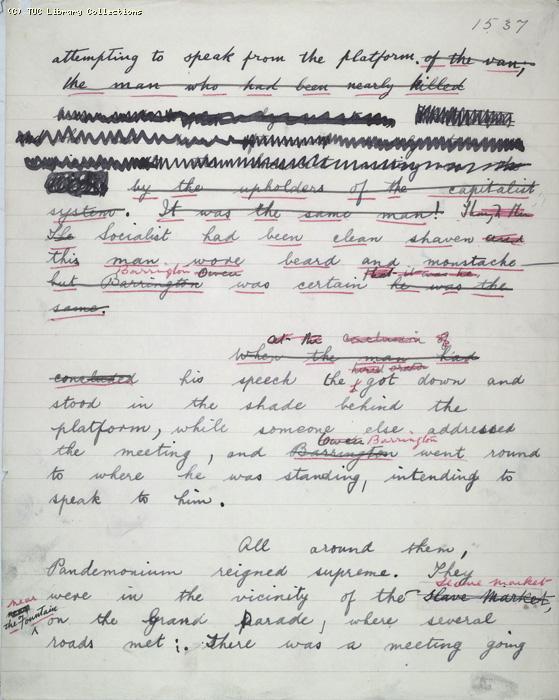 (C) TUC Library Collections
1537
attempting to speak from the platform. of the van,
the man who had been nearly killed
by the upholders of the capitalist
system. It was the same man!
The Socialist had been clean shaven and
this man wore beard and moustache
Barrington Owen that it was he.
but Barrington was certain he was the
same.
at the conclusion of
When the man had
hired orator
concluded his speech the got down and
stood in the shade behind the
platform, while someone else addressed
Owen Barrington
the meeting, and Barrington went round
to where he was standing, intending to
speak to him.
All around them,
Pandemonium reigned supreme. They
Slave Market
near were in the vicinity of the Slave Market,
the Fountain on the Grand Parade, where several
roads met; There was a meeting going